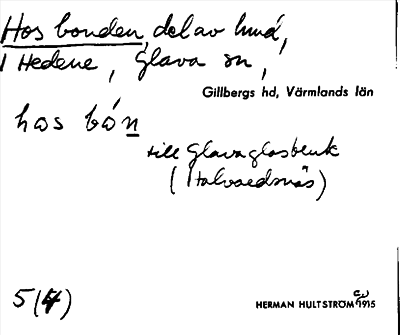 Hos bonden, del av hmd,
i Hedene, Glava sn,
Gillbergs hd, Värmlands län
hos bón
till Glava glasbruk
(Halvardsnäs)
5(4)
HERMAN HULTSTRÖM 1915